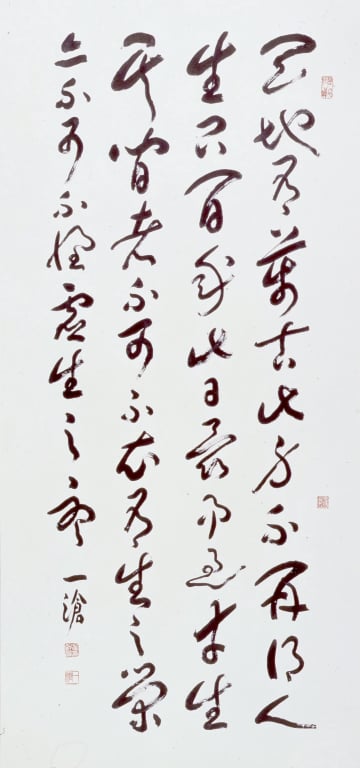 天地有萬古此身不再得人
生只百年此日最易過幸生
其間者不可不知有生之樂
亦不可不懷虛生之憂 一滄